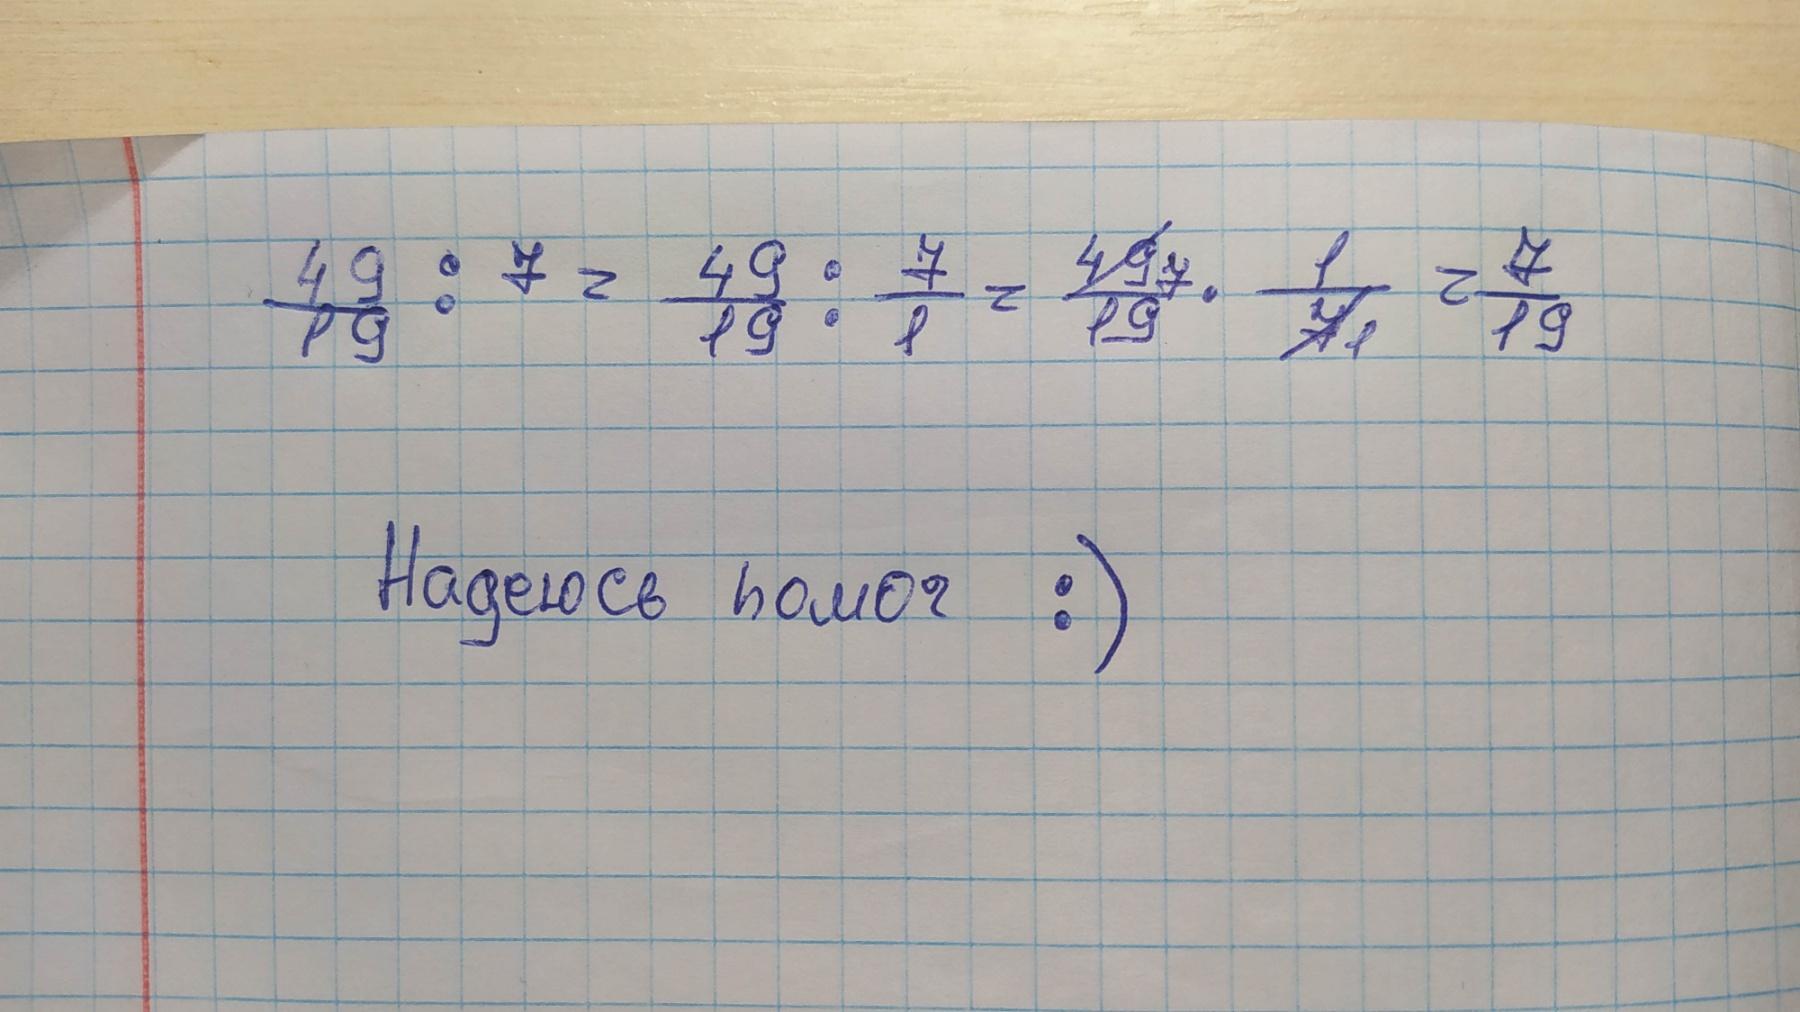 49/19 : 7 = 49/19 : 7/1 = 49 7/19 · 1/7 1 = 7/19
Надеюсь помог :)